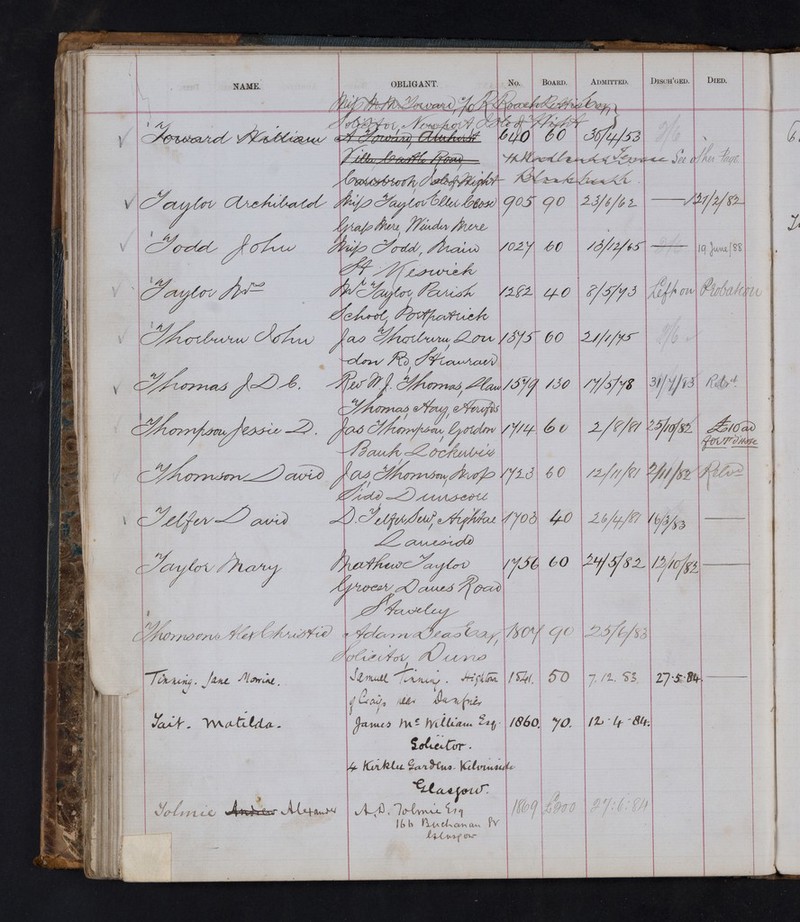 NAME. OBLIGANT. No. BOARD. ADMITTED. DISCH'GED. DIED.
Toward William 640 60 30/4/53 See other Page
Carisbrook Isle of Wight
Taylor Archibald Miss Taylor Eller Close 905 90 23/6/62 — 27/2/82
Grasmere, Windermere
Todd John Miss Todd, Main 1027 60 13/12/65 — 19 June/88
St Keswick
Taylor Wm Mr Taylor, Parish 1282 40 8/5/73 Left on Probation
School, Portpatrick
Thorburn John Jas Thorburn, Lon 1375 60 21/1/75
don Rd, Stranraer
Thomas J D C. Rev W J. Thomas, Llan 1579 130 17/5/78 31/7/83 Relvd.
Thomas, Hay, Herefds
Thompson Jessie D. Jas Thompson, Gordon 1714 60 2/8/81 25/10/82
Bank Lockerbie
Thomson David Jas Thomson, Moss 1723 60 12/11/81 2/11/82 Relvd
Side Dunscore
Telfer David D. Telfer Senr, Hightae 1703 40 26/4/81 16/3/83 —
Laneside
Taylor Mary Mathew Taylor 1756 60 24/5/82 12/10/82 —
Grocer Dawes Road
Staveley
Thomson Alex Christie Adam Deas Esqr, 1807 90 25/6/83
Solicitor, Duns
Tinning. Jane Morrine. Samuel Tinning. Highton 1841. 50 7.12.83. 27.5.84. —
of Craigs near Dumfries
Tait. Matilda. James Mc William Esq. 1860. 70. 12.4.84.
Solicitor.
4 Kirklee Gardens. Kelvinside
Glasgow.
Tolmie Andrew Alexander A. D. Tolmie Esq 1869 £200 27:6:84
166 Buchanan St
Glasgow